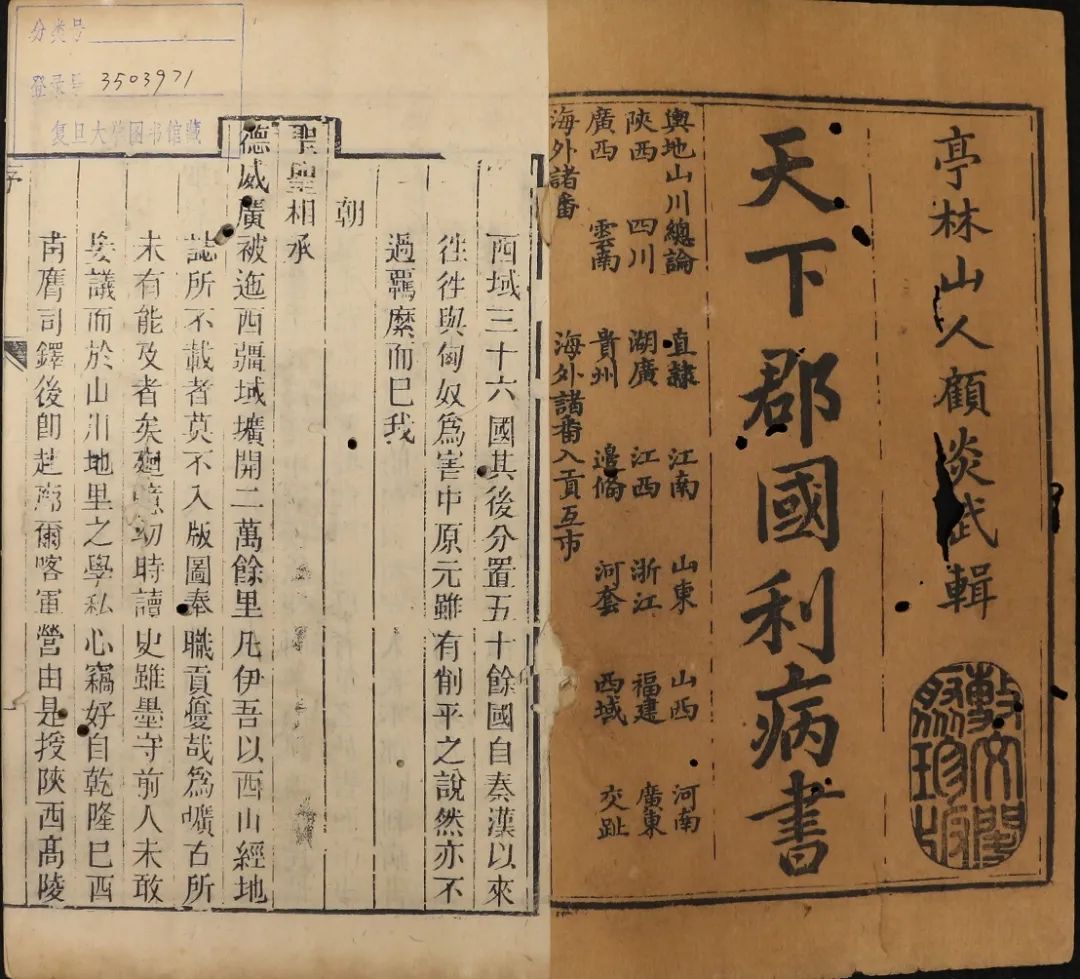 亭林山人顧炎武輯
敷文閣
聚珍版
天下郡國利病書
輿地山川總論 直隸 江南 山東 山西 河南
陝西 四川 湖廣 江西 浙江 福建 廣東
廣西 雲南 貴州 邊俻 河套 西域 交趾
海外諸番 海外諸番入貢互市
西域三十六國其後分置五十餘國自秦漢以來
徃徃與匈奴爲害中原元雖有削平之說然亦不
過羈縻而巳我
朝
聖聖相承
德威廣被迤西疆域壙開二萬餘里凡伊吾以西山經地
誌所不載者莫不入版圖奉職貢優哉爲曠古所
未有能及者矣廻憶幼時讀史雖墨守前人未敢
妄議而於山川地里之學私心竊好自乾隆巳酉
南膺司鐸後卽赴廓爾喀軍營由是授陝西髙陵
序
一
分类号
登录号 3503971
复旦大学图书馆藏